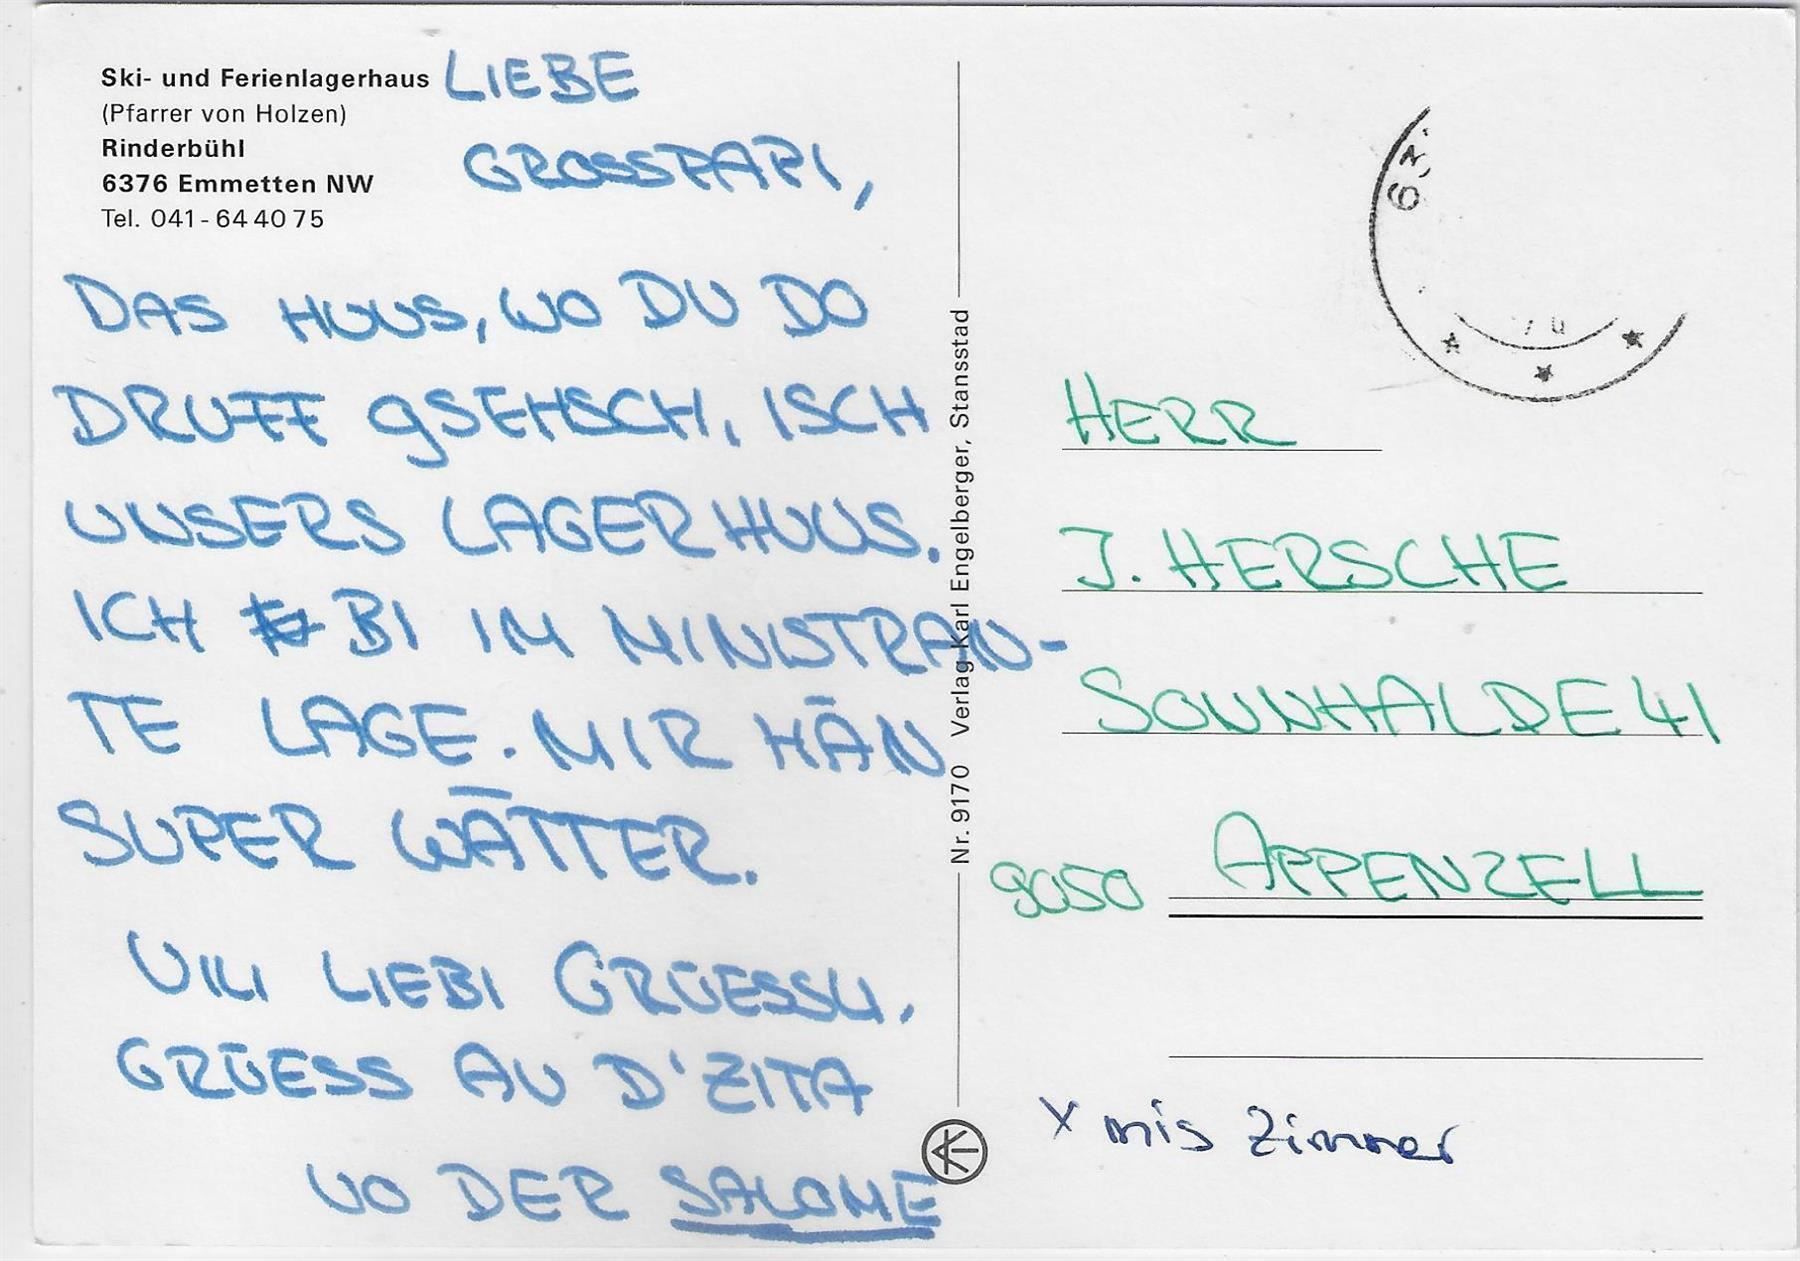 Ski- und Ferienlagerhaus
(Pfarrer von Holzen)
Rinderbühl
6376 Emmetten NW
Tel. 041-64 40 75
LIEBE
GROSSPAPI,
DAS HUUS, WO DU DO
DRUFF GSEHSCH, ISCH
UNSERS LAGERHUUS.
ICH BI IM MINISTRAN-
TE LAGE. MIR HÄN
SUPER WÄTTER.
VILI LIEBI GRÜESSLI,
GRÜESS AU D'ZITA
VO DER SALOME
Nr. 9170 Verlag Karl Engelberger, Stansstad
HERR
J. HERSCHE
SONNHALDE 41
9050 APPENZELL
x mis Zimmer